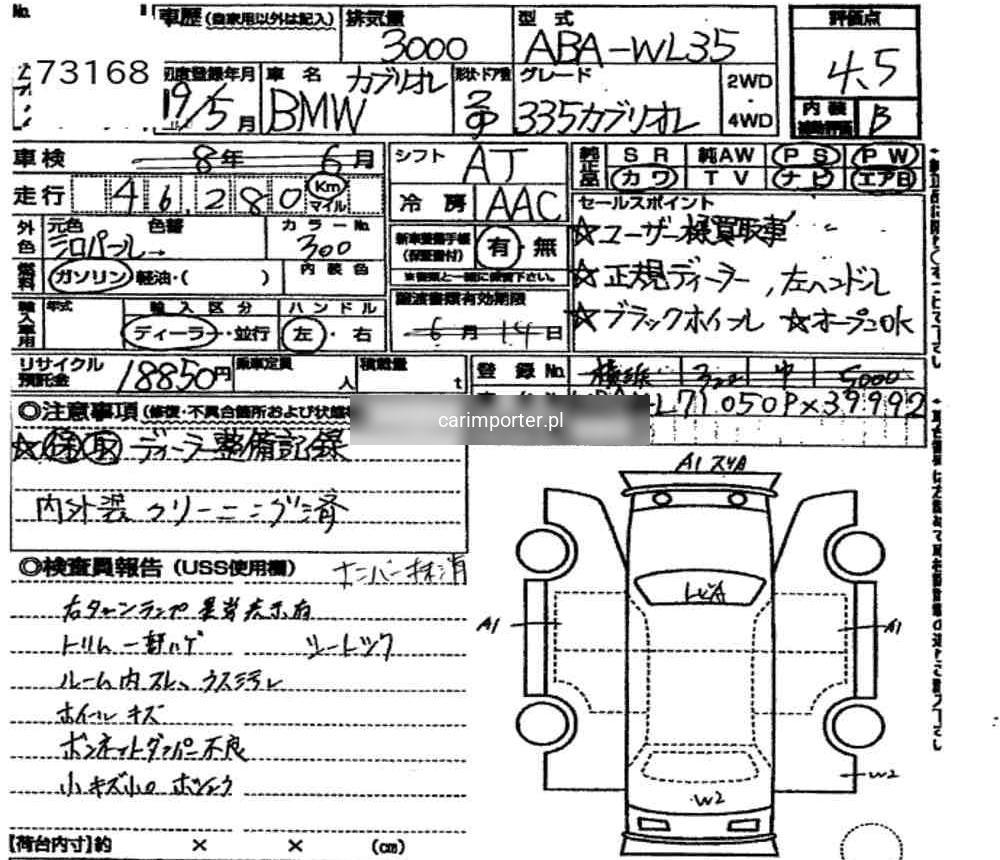 No.
車歴 (自家用以外は記入) 排気量 3000 型式 ABA-WL35 評価点 4.5
73168
初度登録年月 19/5月 車名 BMW カブリオレ 形状・ドア数 2D グレード 335カブリオレ 2WD・4WD 内装 補助評価 B
車検 8年 6月 シフト AT 純正品 SR 純AW PS PW
走行 46,280 Km マイル 冷房 AAC カワ TV ナビ エアB
外色 元色 シロパール 色替 → カラーNo. 300
新車整備手帳 (保証書付) 有・無
※書類と一緒に保管下さい。
セールスポイント
☆ユーザー様買取車
☆正規ディーラー, 左ハンドル
☆ブラックホイール ☆オープンOK
燃料 ガソリン・軽油・( ) 内装色
輸入車用 年式 輸入区分 ディーラー・並行 ハンドル 左・右
譲渡書類有効期限 6月14日
リサイクル預託金 18850円 乗車定員 人 積載量 t 登録No. 横浜
L71050PX39992
◎注意事項 (修復・不具合箇所および状態
carimporter.pl
☆保取 ディーラー整備記録
内外装クリーニング済
◎検査員報告 (USS使用欄) ナンバー抹消
右ターンランプ異常表示有
トリム一部ハゲ
ルーム内スレ、ウス汚レ
ホイールキズ
ボンネットダンパー不良
小キズ小凹
A1
A1
A1
W2
W2
【荷台内寸】約 × × (cm)